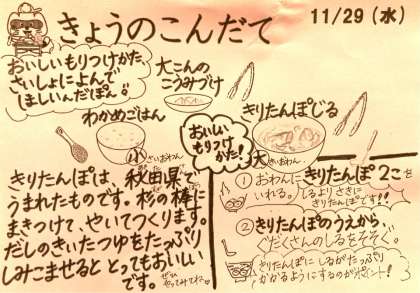 きょうのこんだて
11/29(水)
おいしいもりつけかた、
さいしょによんで
ほしいんだぽん。
大こんの
こうみづけ
わかめごはん
小さいおわん
おいしい
もりつけ
かた!
きりたんぽじる
大きいおわん
きりたんぽは、秋田県で
うまれたものです。杉の棒に
まきつけて、やいてつくります。
だしのきいたつゆをたっぷり
しみこませると とってもおいしい
です。ぜひやってみてね。
① おわんに きりたんぽ2こを
いれる。しるよりさきに
きりたんぽです!!
② きりたんぽのうえから、
ぐだくさんのしるをそそぐ。
きりたんぽに しるがたっぷり
かかるようにするのがポイント!